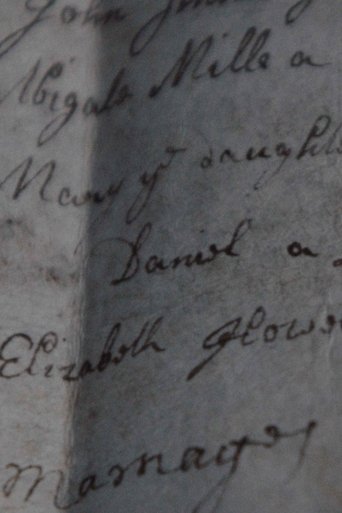 John
Abigale Mille a
Mary yᵉ daught
Daniel a
Elizabeth Glowe
Marriages